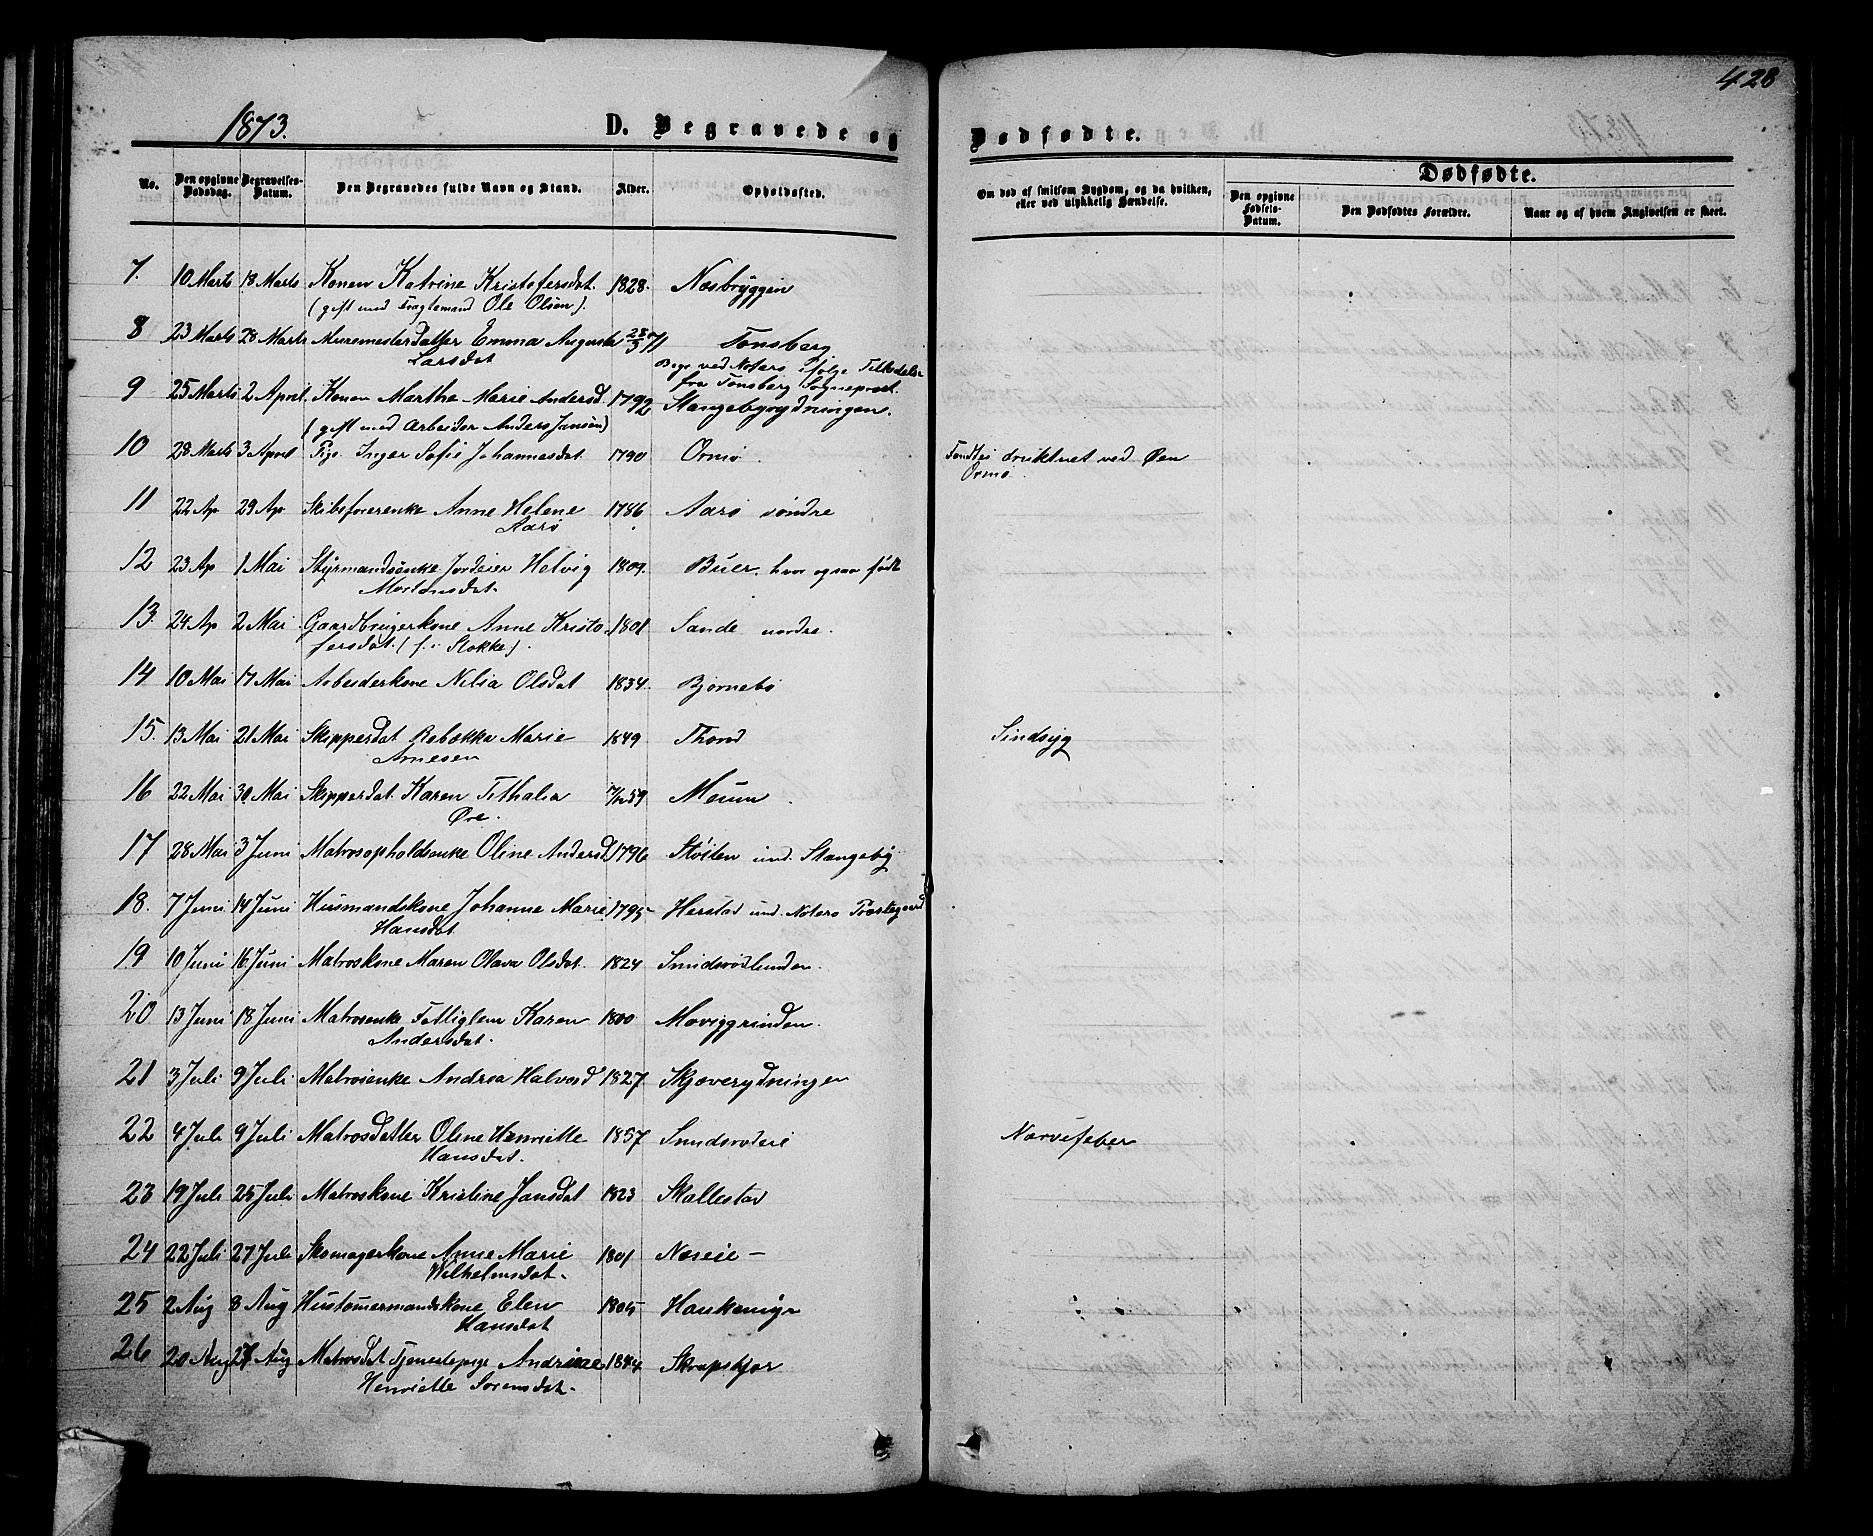 428
1873.
D. Begravede og Dødfødte.
Dødfødte.
No. Den opgivne Dødsdag. Begravelses-Datum. Den Begravedes fulde Navn og Stand. Alder. Opholdssted. Om død af smitsom Sygdom, og da hvilken, eller ved ulykkelig Hændelse. Den opgivne Fødsels-Datum. Den Dødfødtes Forældre. Naar og af hvem Angivelsen er skeet.
7. 10 Marts 18 Marts Konen Katrine Kristofersdat. 1828. Næsbryggen
(gift med Fragtemand Ole Olsen).
8 23 Marts 28 Marts Muremesterdatter Emma Augusta 28/3 71 Tønsberg
Larsdat Begr. ved Nøterø ifølge Tilladelse
fra Tønsberg Sogneprest.
9 25 Marts 2 April Konen Marthe Marie Andersd. 1792 Stangebyrydningen.
(gift med Arbeider Anders Jansen)
10 28 Marts 3 April Pige Inger Sofie Johannesdat. 1790 Ormø Fandtes druktnet ved Øen
Ormø.
11 22 Ap 29 Ap Skibsførerenke Anne Helene 1786 Aarø søndre
Aarø
12 23 Ap 1 Mai Styrmandsenke Jordeier Helvig 1809. Buer, hvor ogsaa født
Mortensdat.
13. 24 Ap 2 Mai Gaardbrugerkone Anne Kristo- 1801 Sande nordre.
fersdat. (f. i Stokke).
14 10 Mai 17 Mai Arbeiderkone Nilia Olsdat 1834. Bjørnebø
15. 13 Mai 21 Mai Skipperdat Rebækka Marie 1849 Thorød Sindsyg
Arnesen
16 22 Mai 30 Mai Skipperdat. Karen Tithalia 59 Meum.
Øre.
17 28 Mai 3 Juni Matrosopholdsenke Oline Andersd 1796 Støiten und. Stangeby
18. 7 Juni 14 Juni Husmandskone Johanne Marie 1795 Herstad und. Nøterø Præstegaard
Hansdat
19 10 Juni 16 Juni Matroskone Maren Olava Olsdat. 1824 Smidsrødlunden.
20 13 Juni 18 Juni Matrosenke Fattiglem Karen 1800 Moviggrinden.
Andersdat.
21 3 Juli 9 Juli Matrosenke Andrea Halvorsd 1827 Skjærerydningen
22 4 Juli 9 Juli Matrosdatter Oline Henriette 1857 Smidsrødeie Nærvefeber
Hansdat.
23 19 Juli 25 Juli Matroskone Kristine Jansdat 1823 Skallestad
24 22 Juli 27 Juli Skomagerkone Anne Marie 1801 Næseie –
Wilhelmsdat.
25 2 Aug 8 Aug Hustømermandskone Elen 1805 Haukemyr
Hansdat
26 20 Aug 27 Aug Matrosdat Tjenestepige Andrine 1844 Skrapskjær
Henriette Sørensdat.